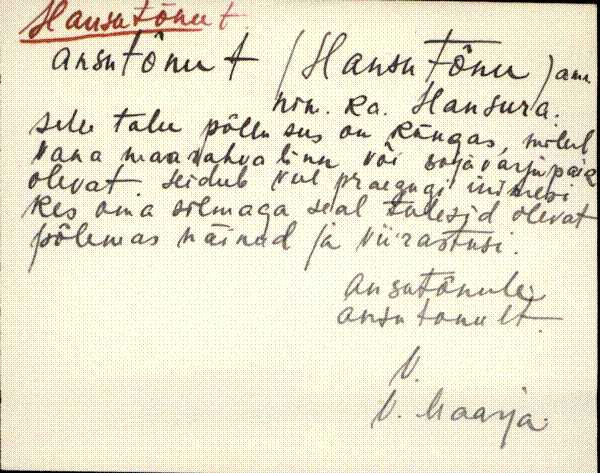 Hansutõnu t
ansutõnu t (Hansu Tõnu) ame
nim. ka. Hansura.
selle talu põllu sus on küngas, millel
vana maarahva linn või sõja varju paig
olevat. leidub veel praegugi inimesi
kes oma silmaga seal tulesid olevat
põlemas näinud ja viirastusi.
ansutõnule
ansutonult.
V.
V. Maarja.